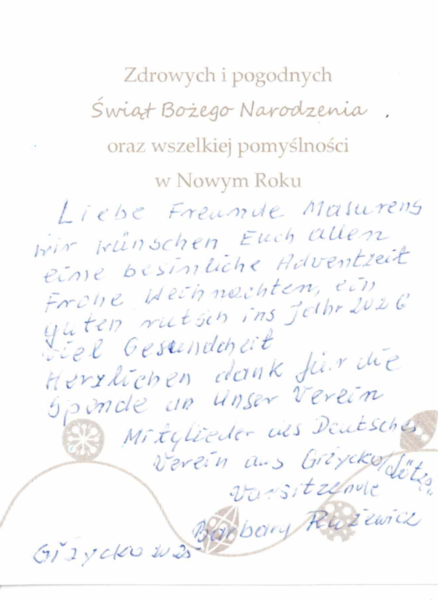 Zdrowych i pogodnych
Świąt Bożego Narodzenia
oraz wszelkiej pomyślności
w Nowym Roku
Liebe Freunde Masurens
wir wünschen Euch allen
eine besinliche Adventzeit
Frohe Weihnachten, ein
guten rutsch ins Jahr 2026
viel Gesundcheit
Herzlichen dank für die
Spände an unser Verein
Mitglieder des Deutsches
Verein aus Giżycko/Lötzen
Vorsitzende
Barbary Rużewicz
Giżycko 2025